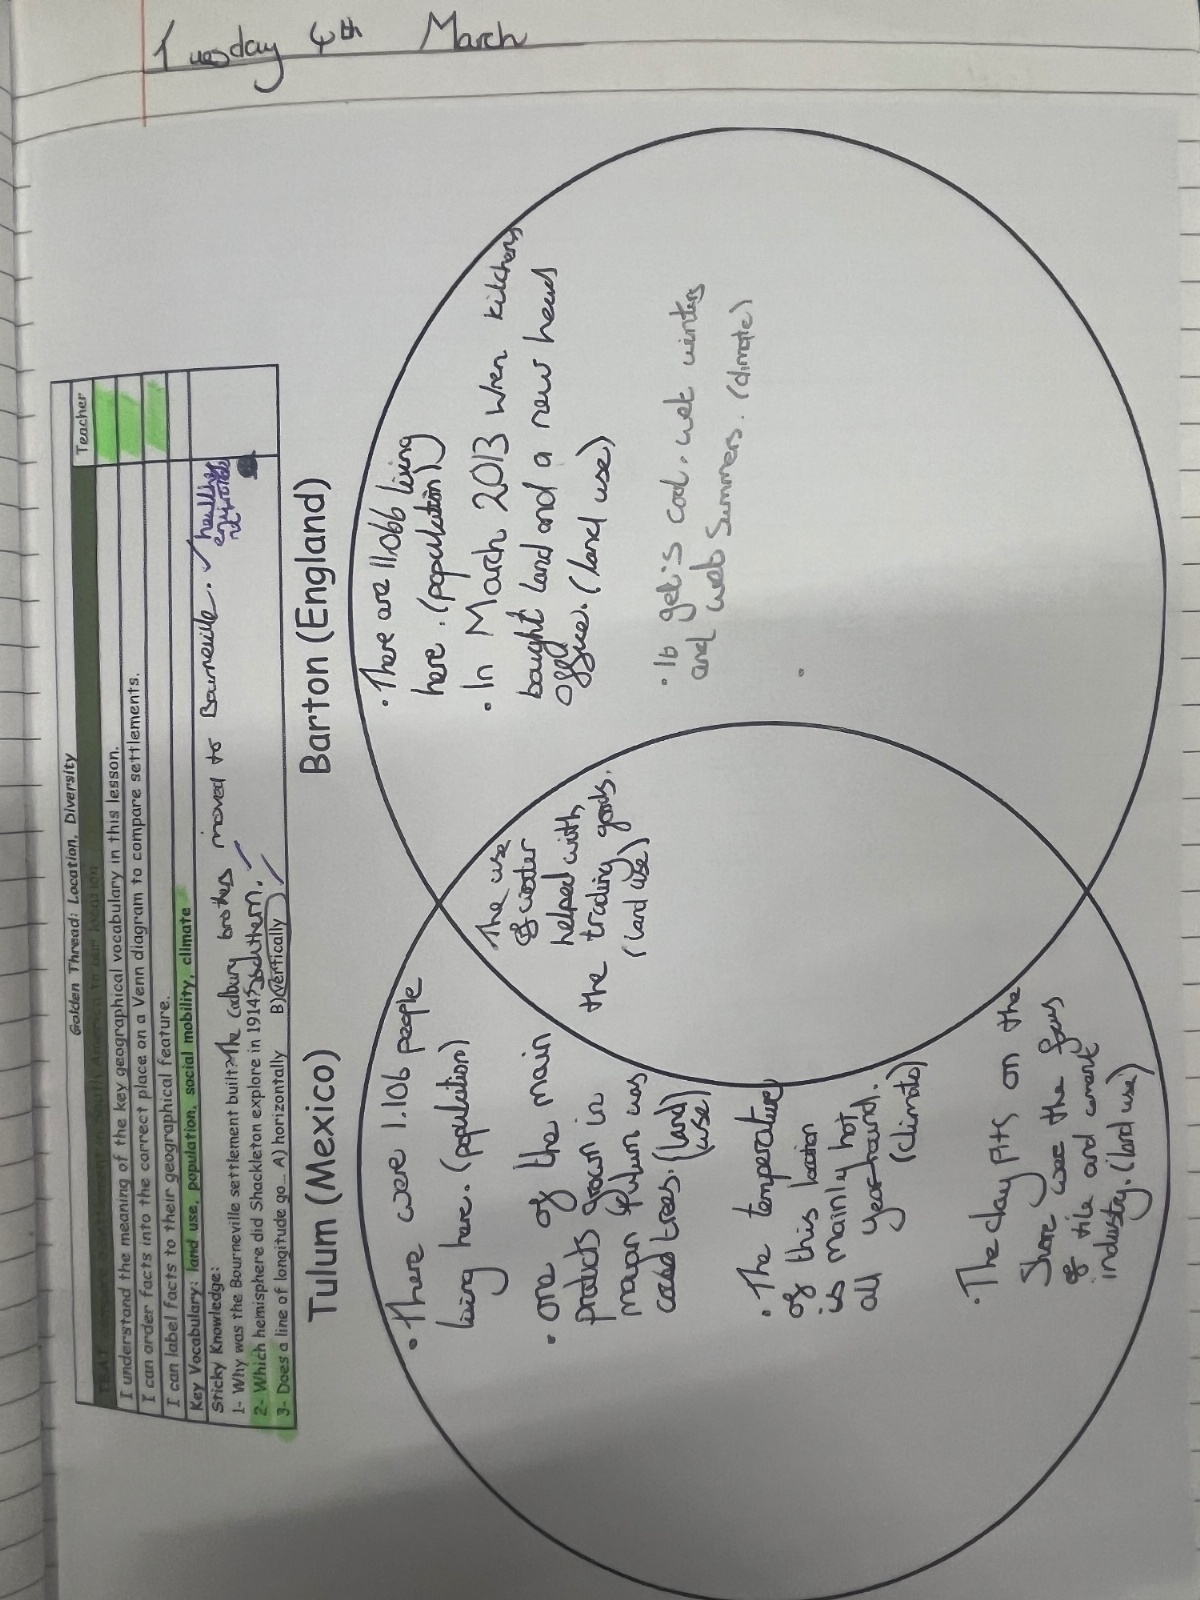 Tuesday 4th March
Golden Thread: Location, Diversity
Teacher
I understand the meaning of the key geographical vocabulary in this lesson.
I can order facts into the correct place on a Venn diagram to compare settlements.
I can label facts to their geographical feature.
Key Vocabulary: land use, population, social mobility, climate
Sticky Knowledge:
1- Why was the Bourneville settlement built? The Cadbury brothers moved to Bourneville.
2- Which hemisphere did Shackleton explore in 1914? Southern.
3- Does a line of longitude go... A) horizontally B) vertically
Tulum (Mexico)
• There were 1.106 people
living here. (population)
• one of the main
products grown in
mayan Tulum was
(land
use)
• The temperature
of this location
is mainly hot
all year round.
(climate)
• The clay pits on the
Shore were the focus
of tile and cement
industry. (land use)
The use
of water
helped with
the trading goods.
(land use)
Barton (England)
• There are 11.066 living
here. (population)
• In March 2013 Wren kitchens
bought land and a new head
office. (land use)
• It gets cool, wet winters
and wet summers. (climate)